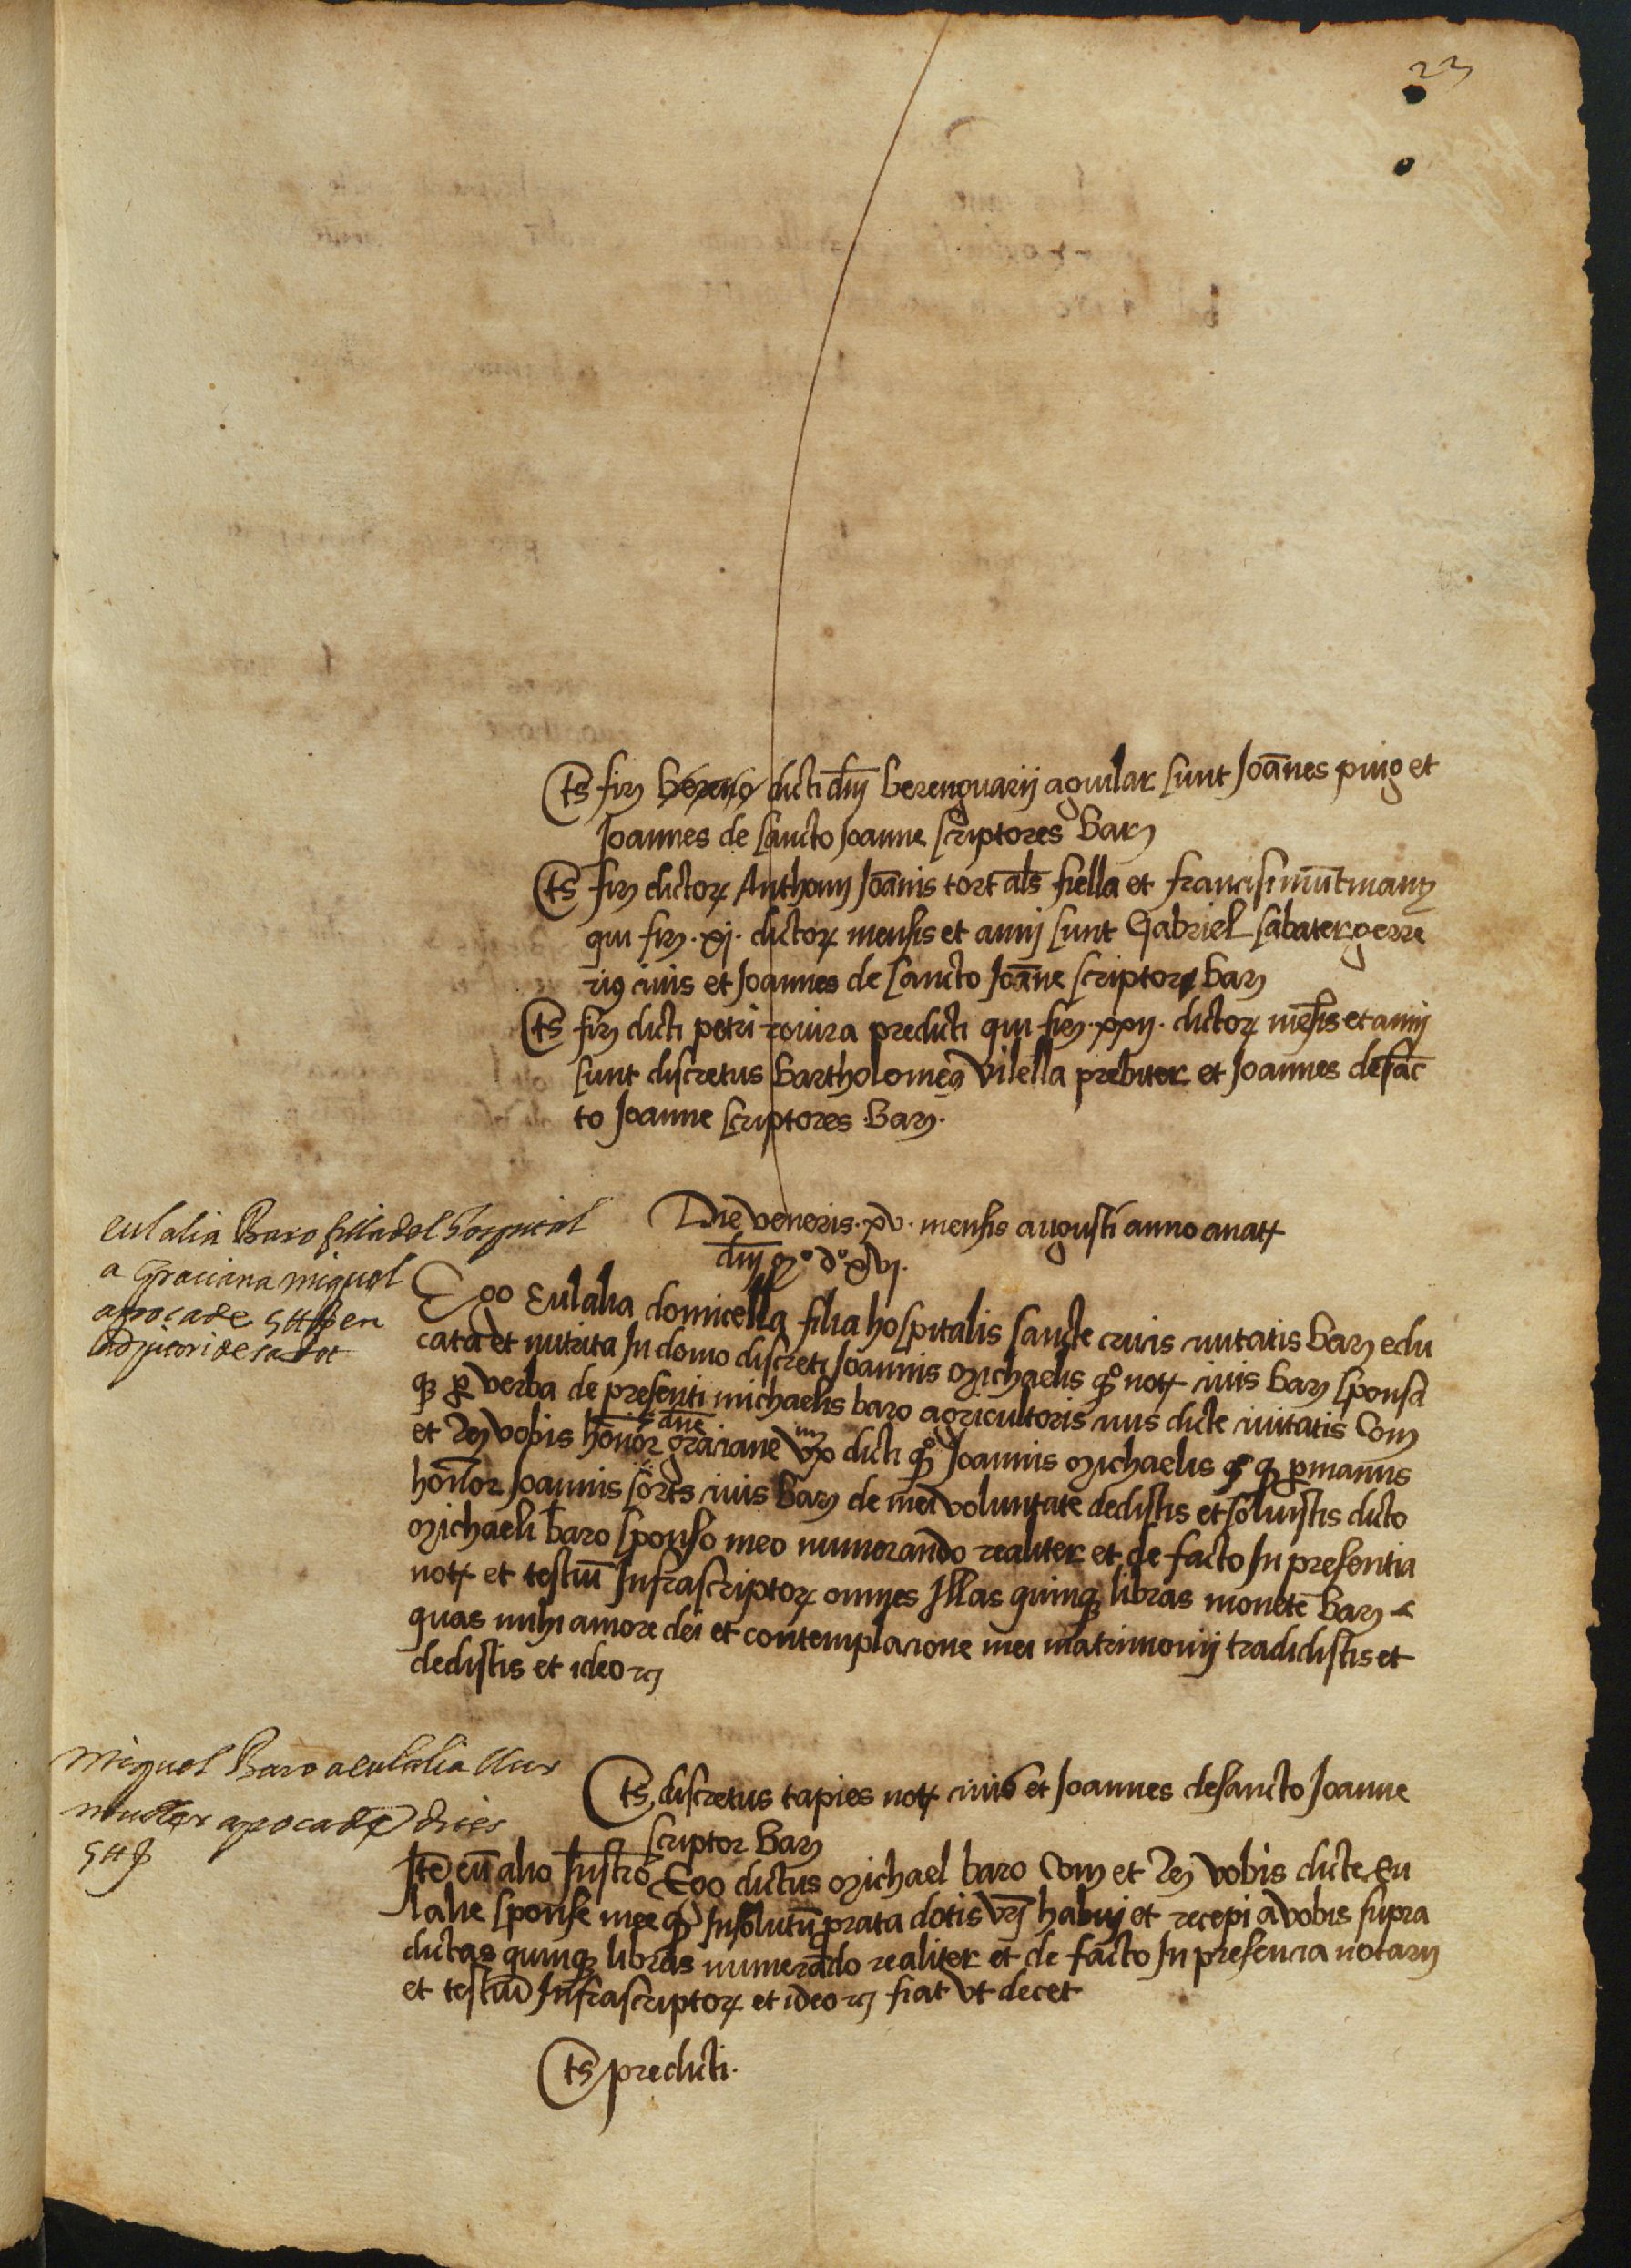 23
Ts firme bereng dicti dni berenguarij aguilar sunt Joānes puig et
Joannes de sancto Joanne scriptores Barn
Ts firme dictor Anthonij Joānis tort als fiella et francisi
qui firme .xj. dictor mensis et annj sunt Gabriel sabater gerre
rius civis et Joannes de sancto Joāne scriptor barn
Ts firme dicti petri rovira predicti qui firme .xxij. dictor mēsis et annj
sunt discretus Bartholomeus Vilella prebiter et Joannes de sāc
to Joanne scriptores Barn.
eulalia Baro filla del Sospital
a Graciana miquel
apoca de 5 ll en
de sa dot
Die veneris .xv. mensis augusti anno a natt
dnj mº dº xvj.
Ego Eulalia domicella filia hospitalis sancte crucis civitatis Barn edu
cata et nutrita In domo discreti Joannis michaelis qº nott civis Barn sponsa
q per verba de presenti michaelis baro agricultoris civis dicte civitatis Con
et Re vobis honor dne graciane vxo dicti qº Joannis michaelis q per manus
honor Joannis sorts civis Barn de mei voluntate dedistis et soluistis dicto
michaeli baro sponso meo numerando realiter et de facto In presentia
nott et testiū Infrascriptor omnes Illas quinq libras monete Barn
quas mihi amore dei et contemplacione mei matrimonij tradidistis et
dedistis et ideo rc
Miquel Baro a eulalia sa
muller apoca de dites
5 ll
Ts discretus tapies nott civis et Joannes de sancto Joanne
scriptor Barn
Itē cū alio Instrō Ego dictus michael baro Con et Re vobis dicte Eu
lalie sponse mee q In solutū prata dotis vrj habuj et recepi a vobis supra
dictas quinq libras numerādo realiter et de facto In presencia notarij
et testiū Infrascriptor et ideo rc fiat vt decet
Ts predicti.